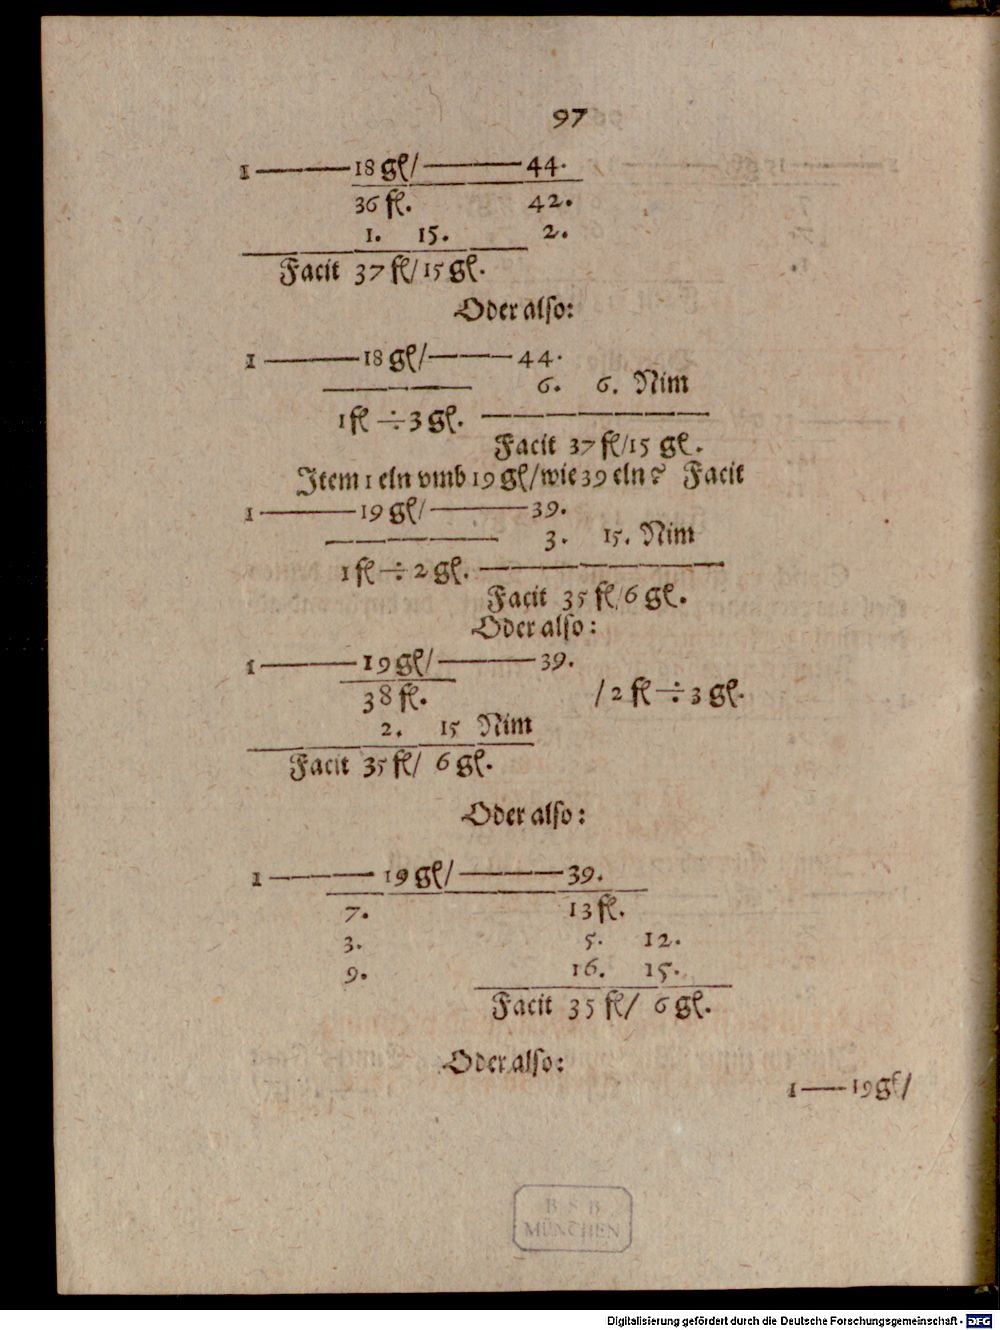 97
1 ——— 18 gl/ ——— 44.
36 fl. 42.
1. 15. 2.
Facit 37 fl/ 15 gl.
Oder also:
1 ——— 18 gl/ ——— 44.
6. 6. Nim
1 fl ÷ 3 gl.
Facit 37 fl/ 15 gl.
Item 1 eln vmb 19 gl/ wie 39 eln? Facit
1 ——— 19 gl/ ——— 39.
3. 15. Nim
1 fl ÷ 2 gl.
Facit 35 fl/ 6 gl.
Oder also:
1 ——— 19 gl/ ——— 39.
38 fl. / 2 fl ÷ 3 gl.
2. 15 Nim
Facit 35 fl/ 6 gl.
Oder also:
1 ——— 19 gl/ ——— 39.
7. 13 fl.
3. 5. 12.
9. 16. 15.
Facit 35 fl/ 6 gl.
Oder also:
1 —— 19 gl/
B S B
MÜNCHEN
Digitalisierung gefördert durch die Deutsche Forschungsgemeinschaft - DFG